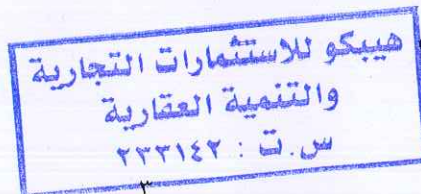 هيبكو للاستثمارات التجارية
والتنمية العقارية
س.ت : ٢٣٣١٤٢